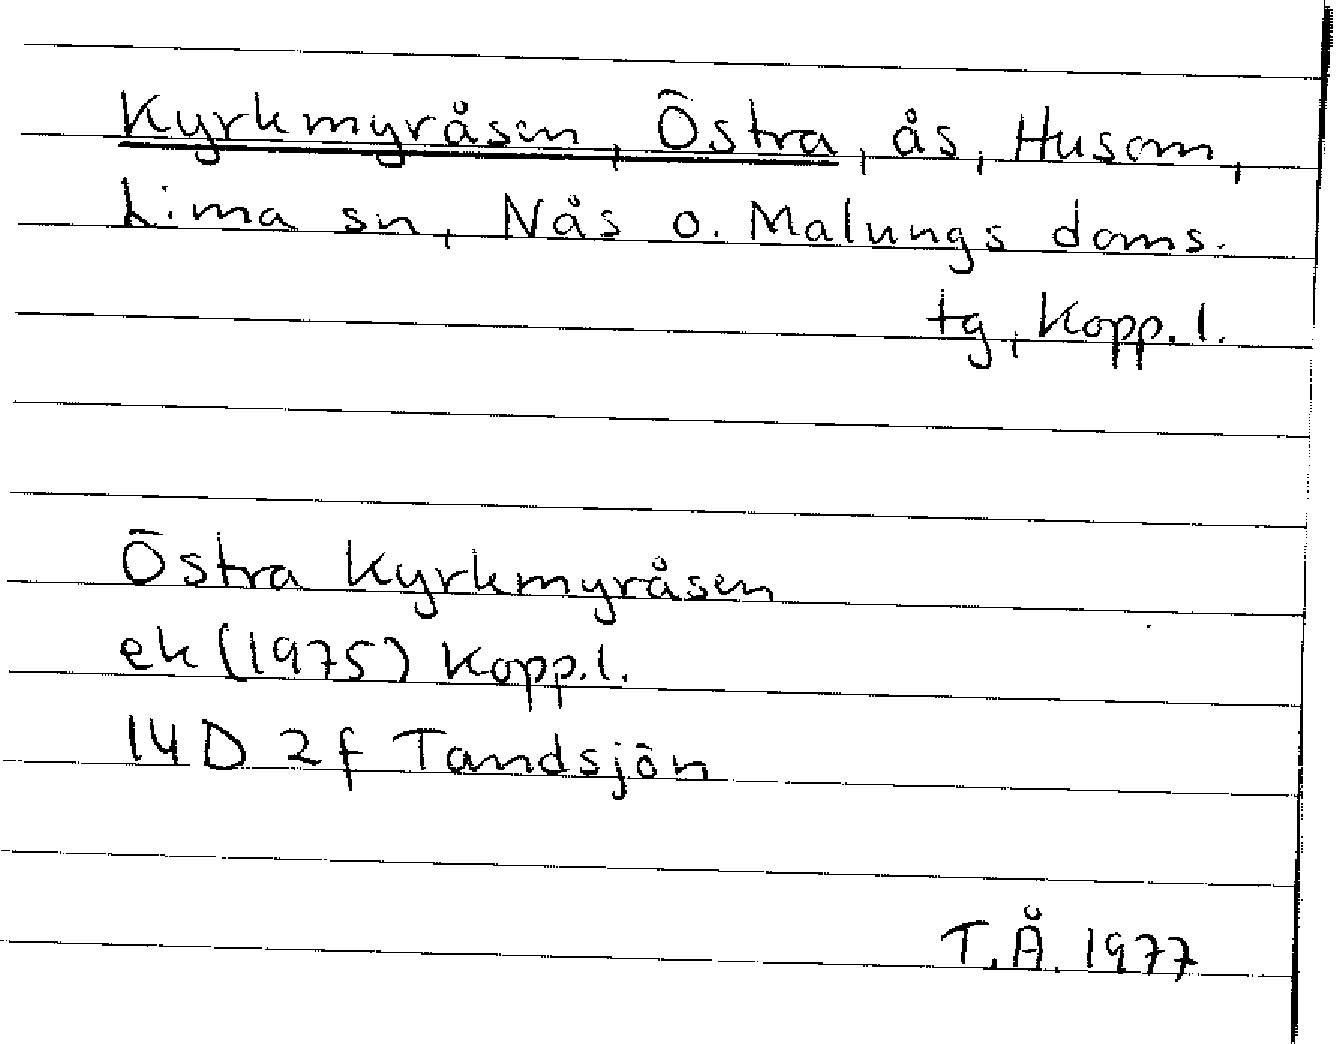 Kyrkmyråsen, Östra, ås, Husom,
Lima sn, Nås o. Malungs doms.
tg, Kopp. l.
Östra Kyrkmyråsen
ek (1975) Kopp. l.
14 D 2f Tandsjön
T.Å. 1977